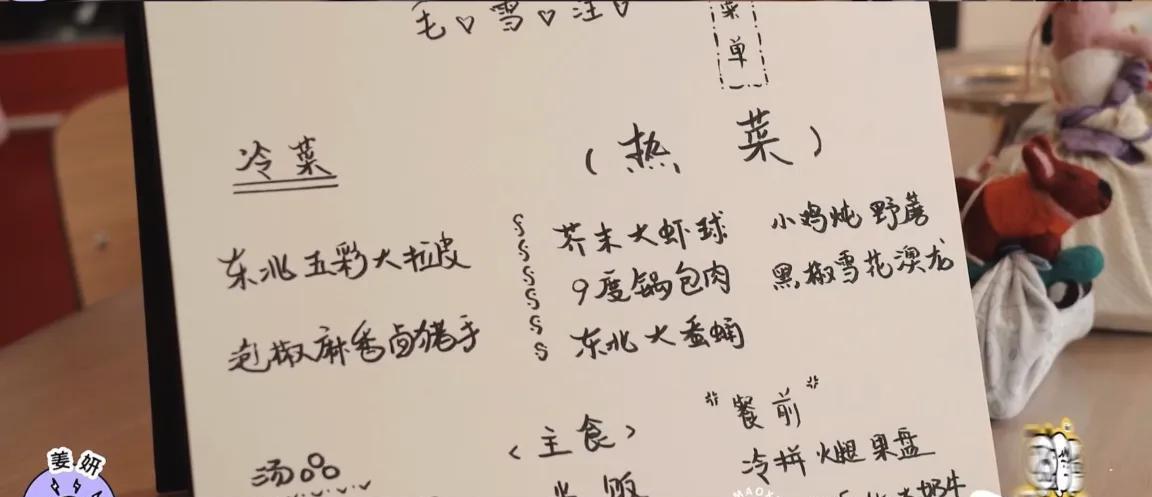 毛♡雪♡汪♡
菜单
冷菜
(热菜)
东北五彩大拉皮
泡椒麻香卤猪手
芥末大虾球
小鸡炖野蘑
9度锅包肉
黑椒雪花澳龙
东北大蚕蛹
<主食>
"餐前"
汤
冷拼火腿果盘
米饭
姜妍